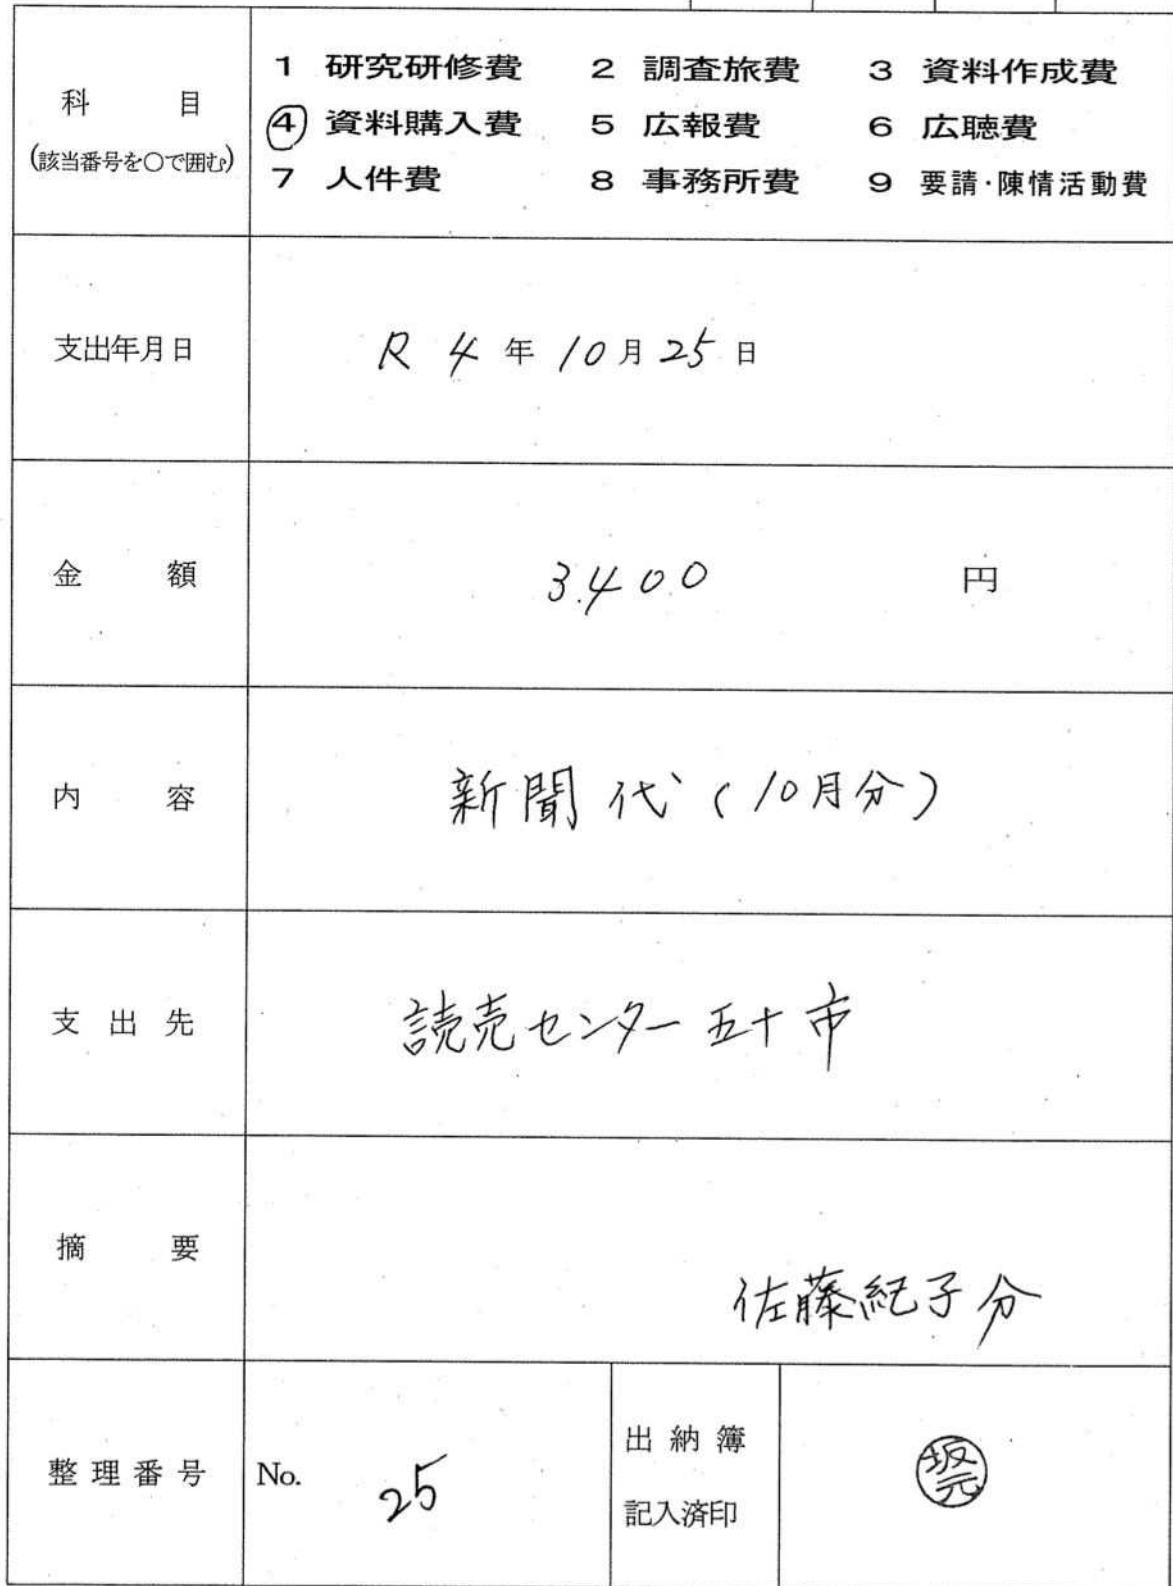 科 目
(該当番号を○で囲む)
1 研究研修費 2 調査旅費 3 資料作成費
④ 資料購入費 5 広報費 6 広聴費
7 人件費 8 事務所費 9 要請・陳情活動費
支出年月日 R 4 年 10 月 25 日
金 額 3.400 円
内 容 新聞代(10月分)
支出先 読売センター五十市
摘 要 佐藤紀子分
整理番号 No. 25
出納簿
記入済印
坂元